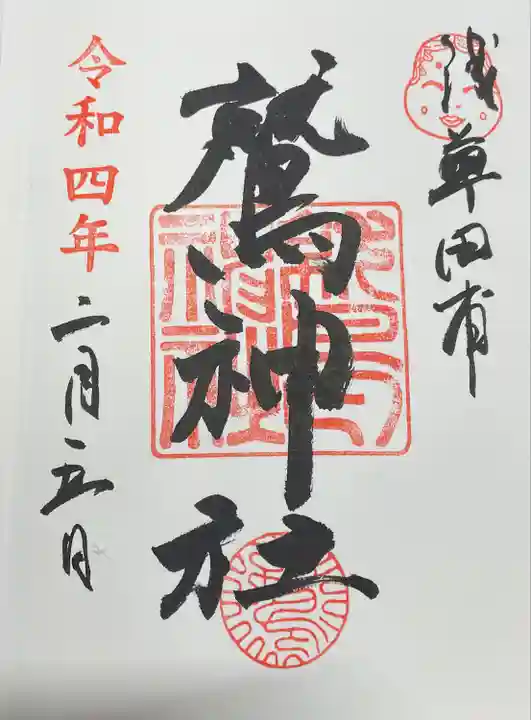 浅草田甫
鷲神社
令和四年二月五日